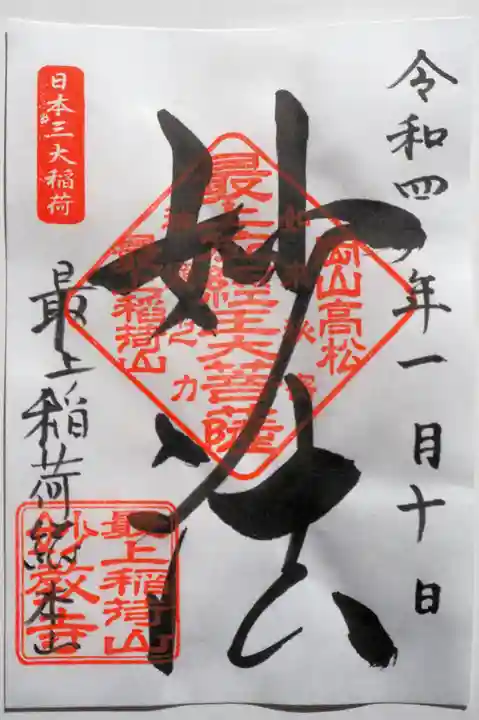 令和四年一月十日
妙法
岡山高松
最上位経王大菩薩
最上稲荷山
日本三大稲荷
最上稲荷総本山
最上稲荷山
妙教寺